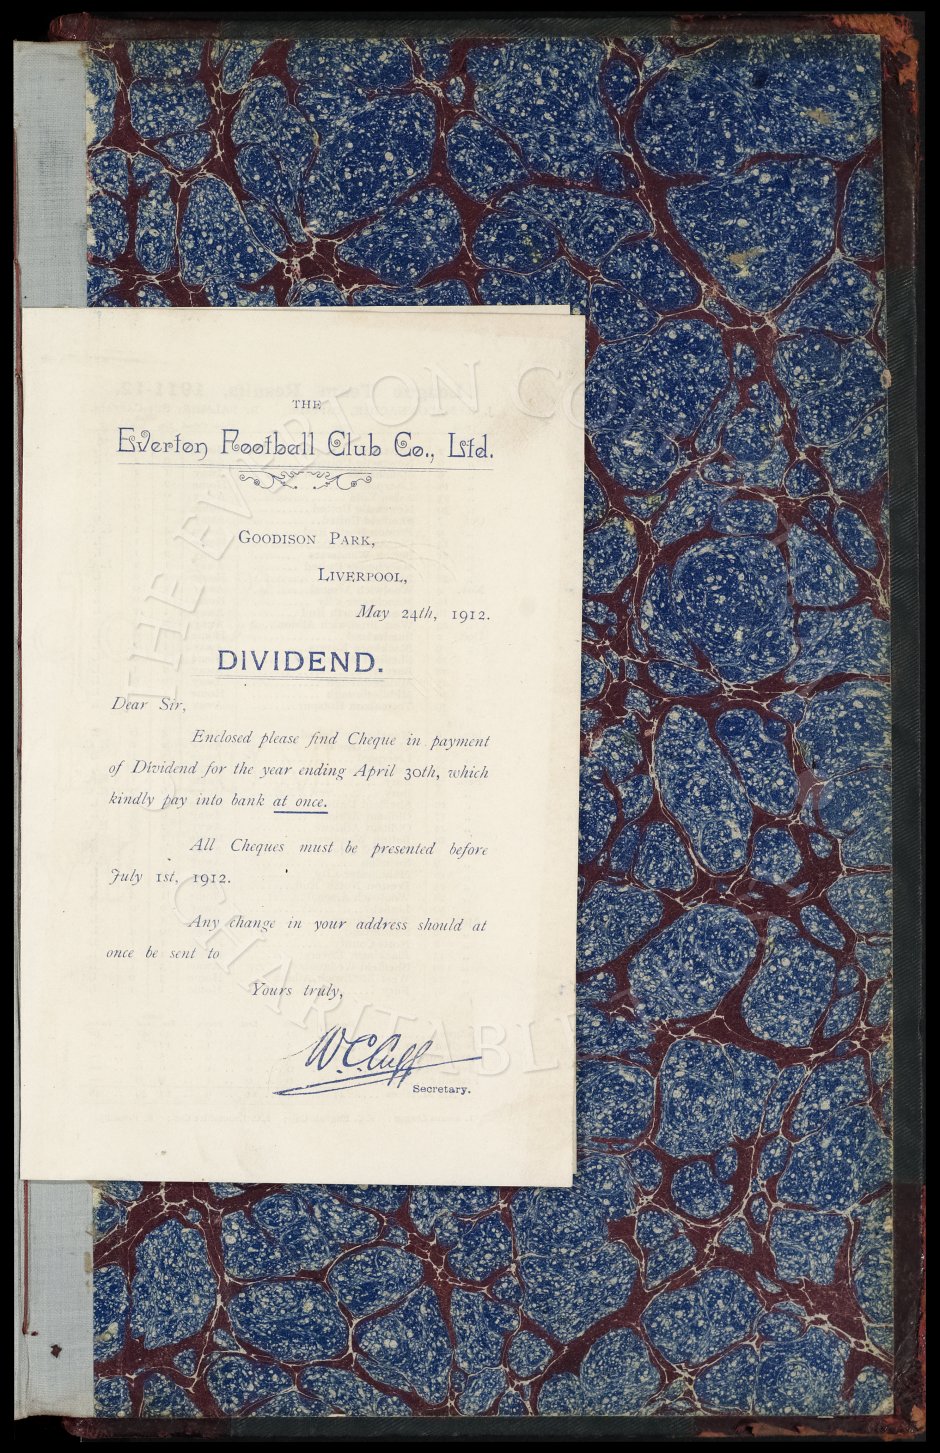 THE
Everton Football Club Co., Ltd.
GOODISON PARK,
LIVERPOOL,
May 24th, 1912.
DIVIDEND.
Dear Sir,
Enclosed please find Cheque in payment
of Dividend for the year ending April 30th, which
kindly pay into bank at once.
All Cheques must be presented before
July 1st, 1912.
Any change in your address should at
once be sent to
Yours truly,
W. C. Cuff
Secretary.
THE EVERTON CO
CHARITABLE